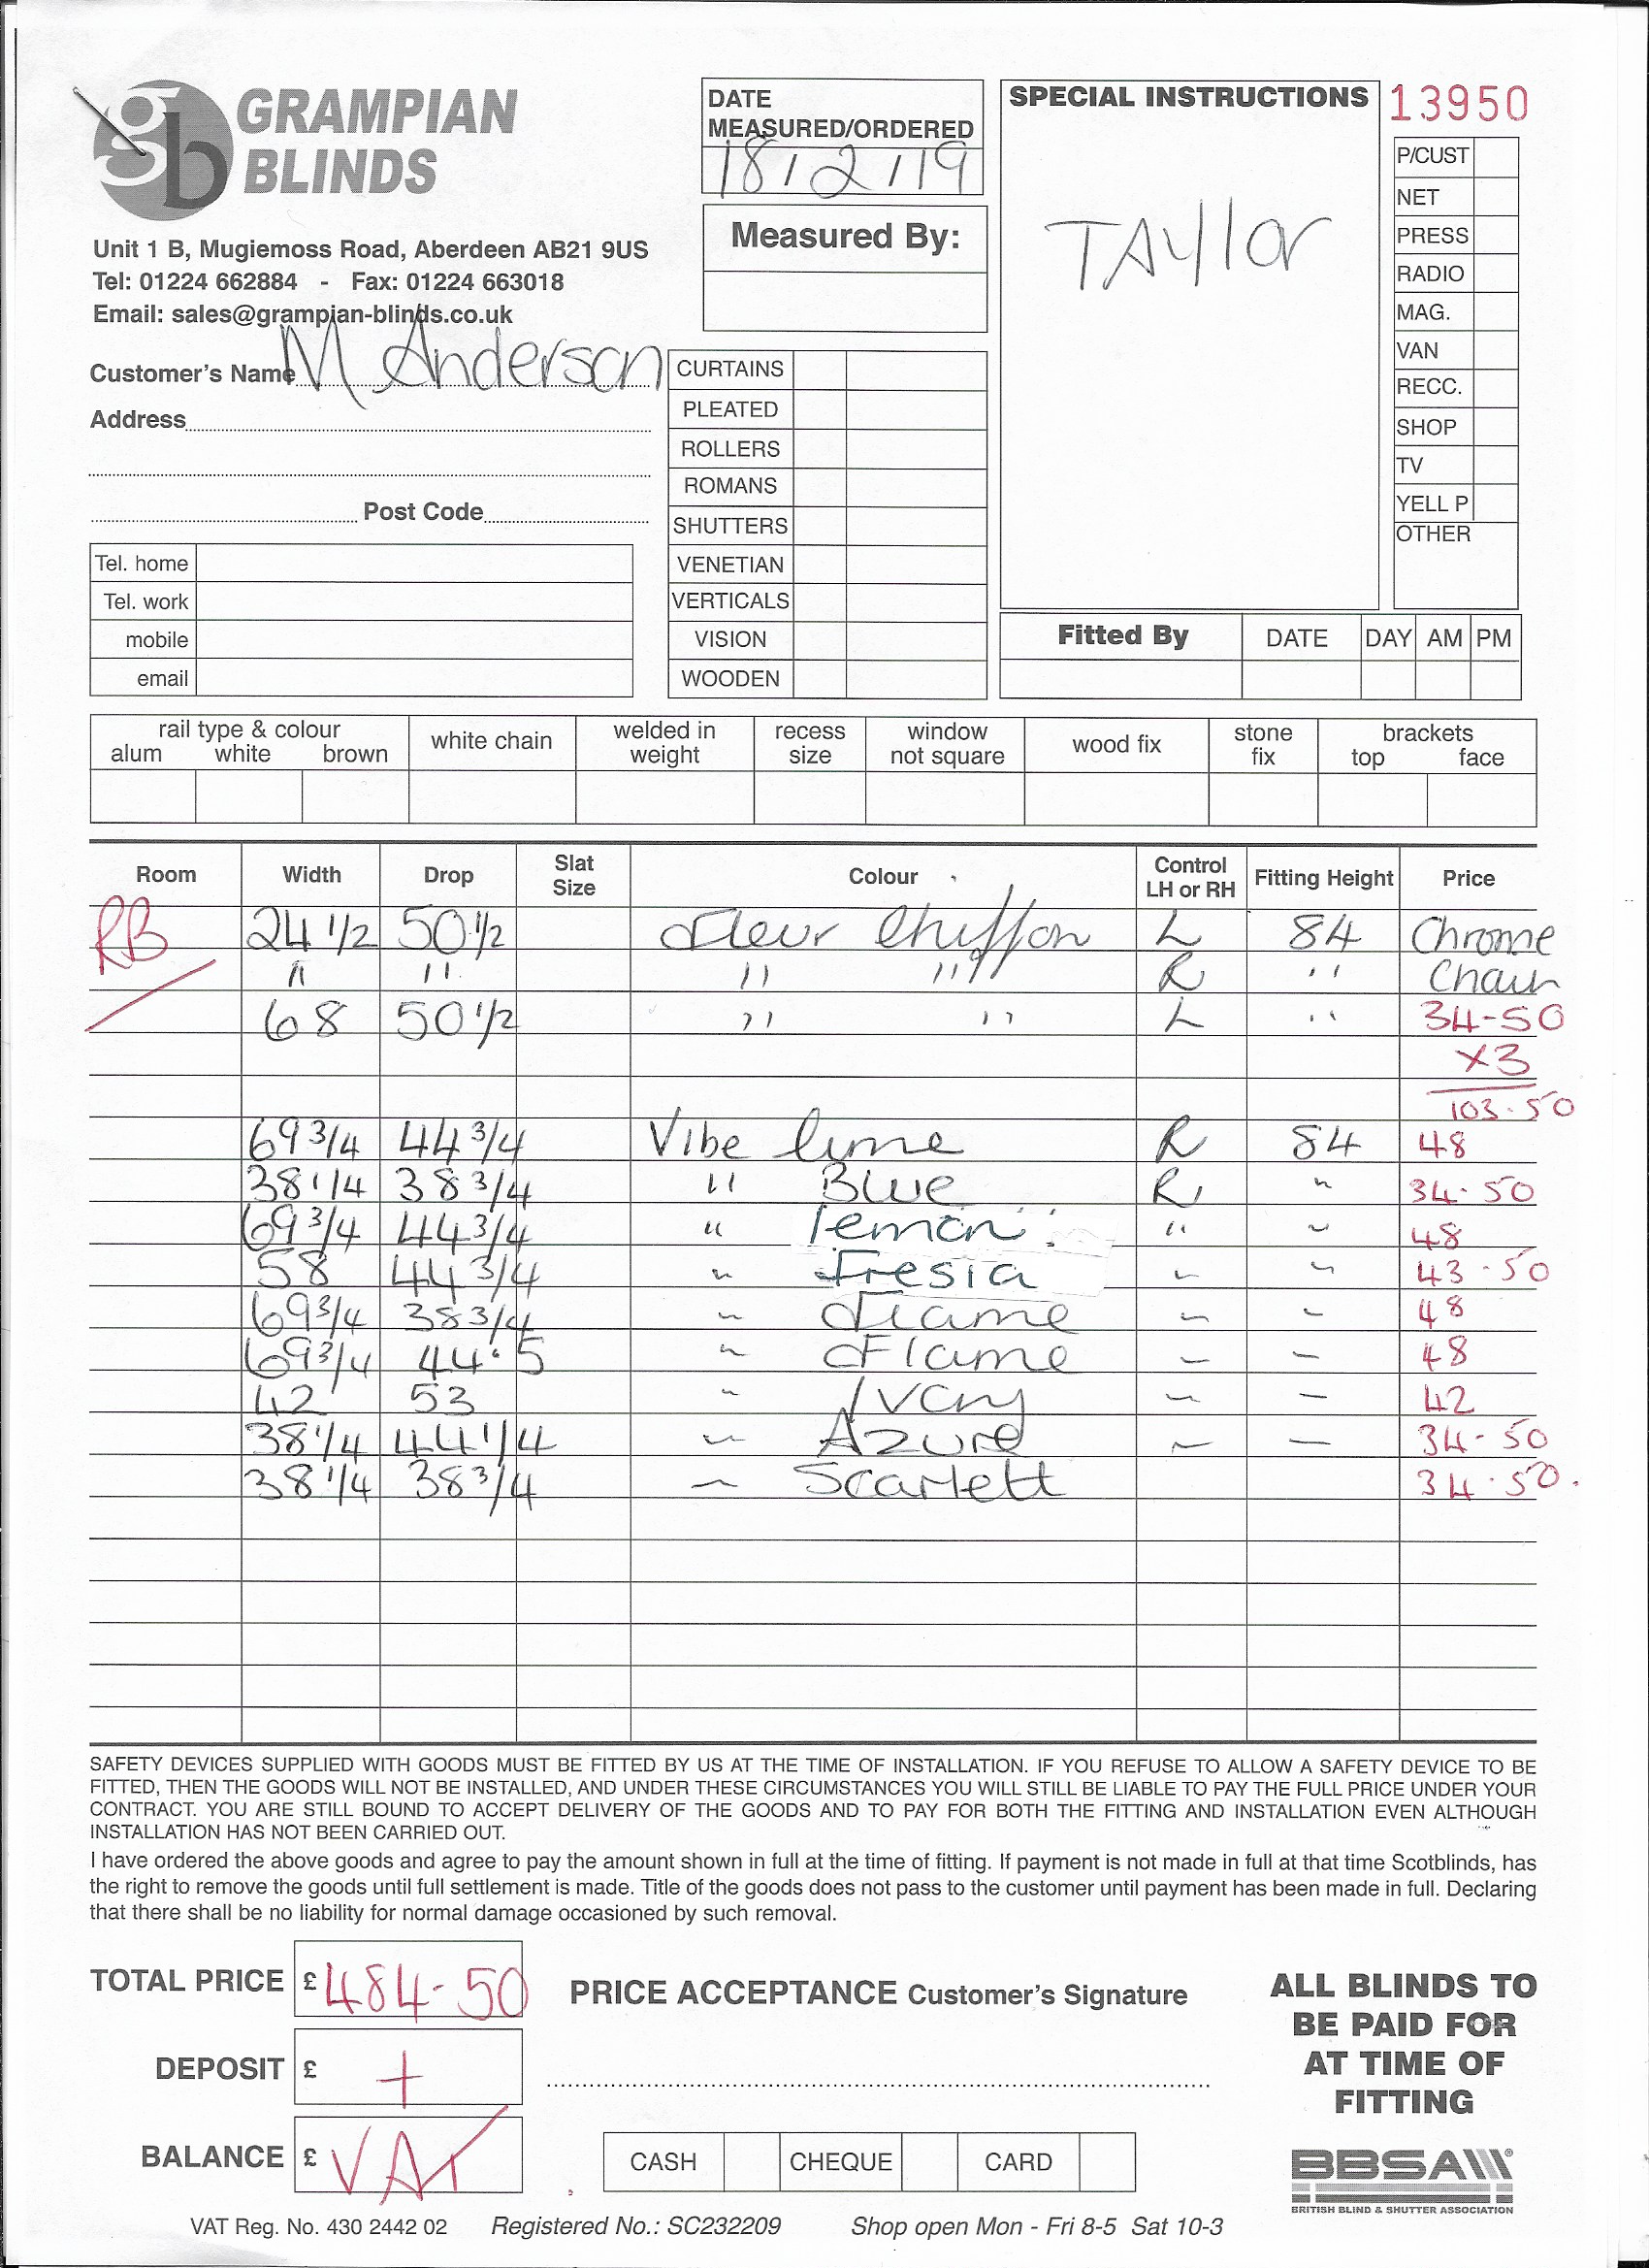 gb GRAMPIAN
BLINDS
Unit 1 B, Mugiemoss Road, Aberdeen AB21 9US
Tel: 01224 662884 - Fax: 01224 663018
Email: sales@grampian-blinds.co.uk
Customer's Name M Anderson
Address
Post Code
Tel. home
Tel. work
mobile
email
DATE
MEASURED/ORDERED
18/2/19
Measured By:
CURTAINS
PLEATED
ROLLERS
ROMANS
SHUTTERS
VENETIAN
VERTICALS
VISION
WOODEN
SPECIAL INSTRUCTIONS
TAylor
13950
P/CUST
NET
PRESS
RADIO
MAG.
VAN
RECC.
SHOP
TV
YELL P
OTHER
Fitted By DATE DAY AM PM
rail type & colour
alum white brown
white chain
welded in
weight
recess
size
window
not square
wood fix
stone
fix
brackets
top face
Room Width Drop Slat Size Colour Control LH or RH Fitting Height Price
RB 24 1/2 50 1/2 Fleur Chiffon L 84 Chrome
" " " " R " Chain
68 50 1/2 " " L " 34-50
x3
103-50
69 3/4 44 3/4 Vibe lime R 84 48
38 1/4 38 3/4 " Blue R " 34-50
69 3/4 44 3/4 " lemon " " 48
58 44 3/4 " Fresia " " 43-50
69 3/4 38 3/4 " Flame " " 48
69 3/4 44.5 " Flame " " 48
42 53 " Ivory " " 42
38 1/4 44 1/4 " Azure " " 34-50
38 1/4 38 3/4 " Scarlett 34.50.
SAFETY DEVICES SUPPLIED WITH GOODS MUST BE FITTED BY US AT THE TIME OF INSTALLATION. IF YOU REFUSE TO ALLOW A SAFETY DEVICE TO BE
FITTED, THEN THE GOODS WILL NOT BE INSTALLED, AND UNDER THESE CIRCUMSTANCES YOU WILL STILL BE LIABLE TO PAY THE FULL PRICE UNDER YOUR
CONTRACT. YOU ARE STILL BOUND TO ACCEPT DELIVERY OF THE GOODS AND TO PAY FOR BOTH THE FITTING AND INSTALLATION EVEN ALTHOUGH
INSTALLATION HAS NOT BEEN CARRIED OUT.
I have ordered the above goods and agree to pay the amount shown in full at the time of fitting. If payment is not made in full at that time Scotblinds, has
the right to remove the goods until full settlement is made. Title of the goods does not pass to the customer until payment has been made in full. Declaring
that there shall be no liability for normal damage occasioned by such removal.
TOTAL PRICE £ 484-50
DEPOSIT £ +
BALANCE £ VAT
PRICE ACCEPTANCE Customer's Signature
CASH CHEQUE CARD
ALL BLINDS TO
BE PAID FOR
AT TIME OF
FITTING
BBSA
BRITISH BLIND & SHUTTER ASSOCIATION
VAT Reg. No. 430 2442 02 Registered No.: SC232209 Shop open Mon - Fri 8-5 Sat 10-3